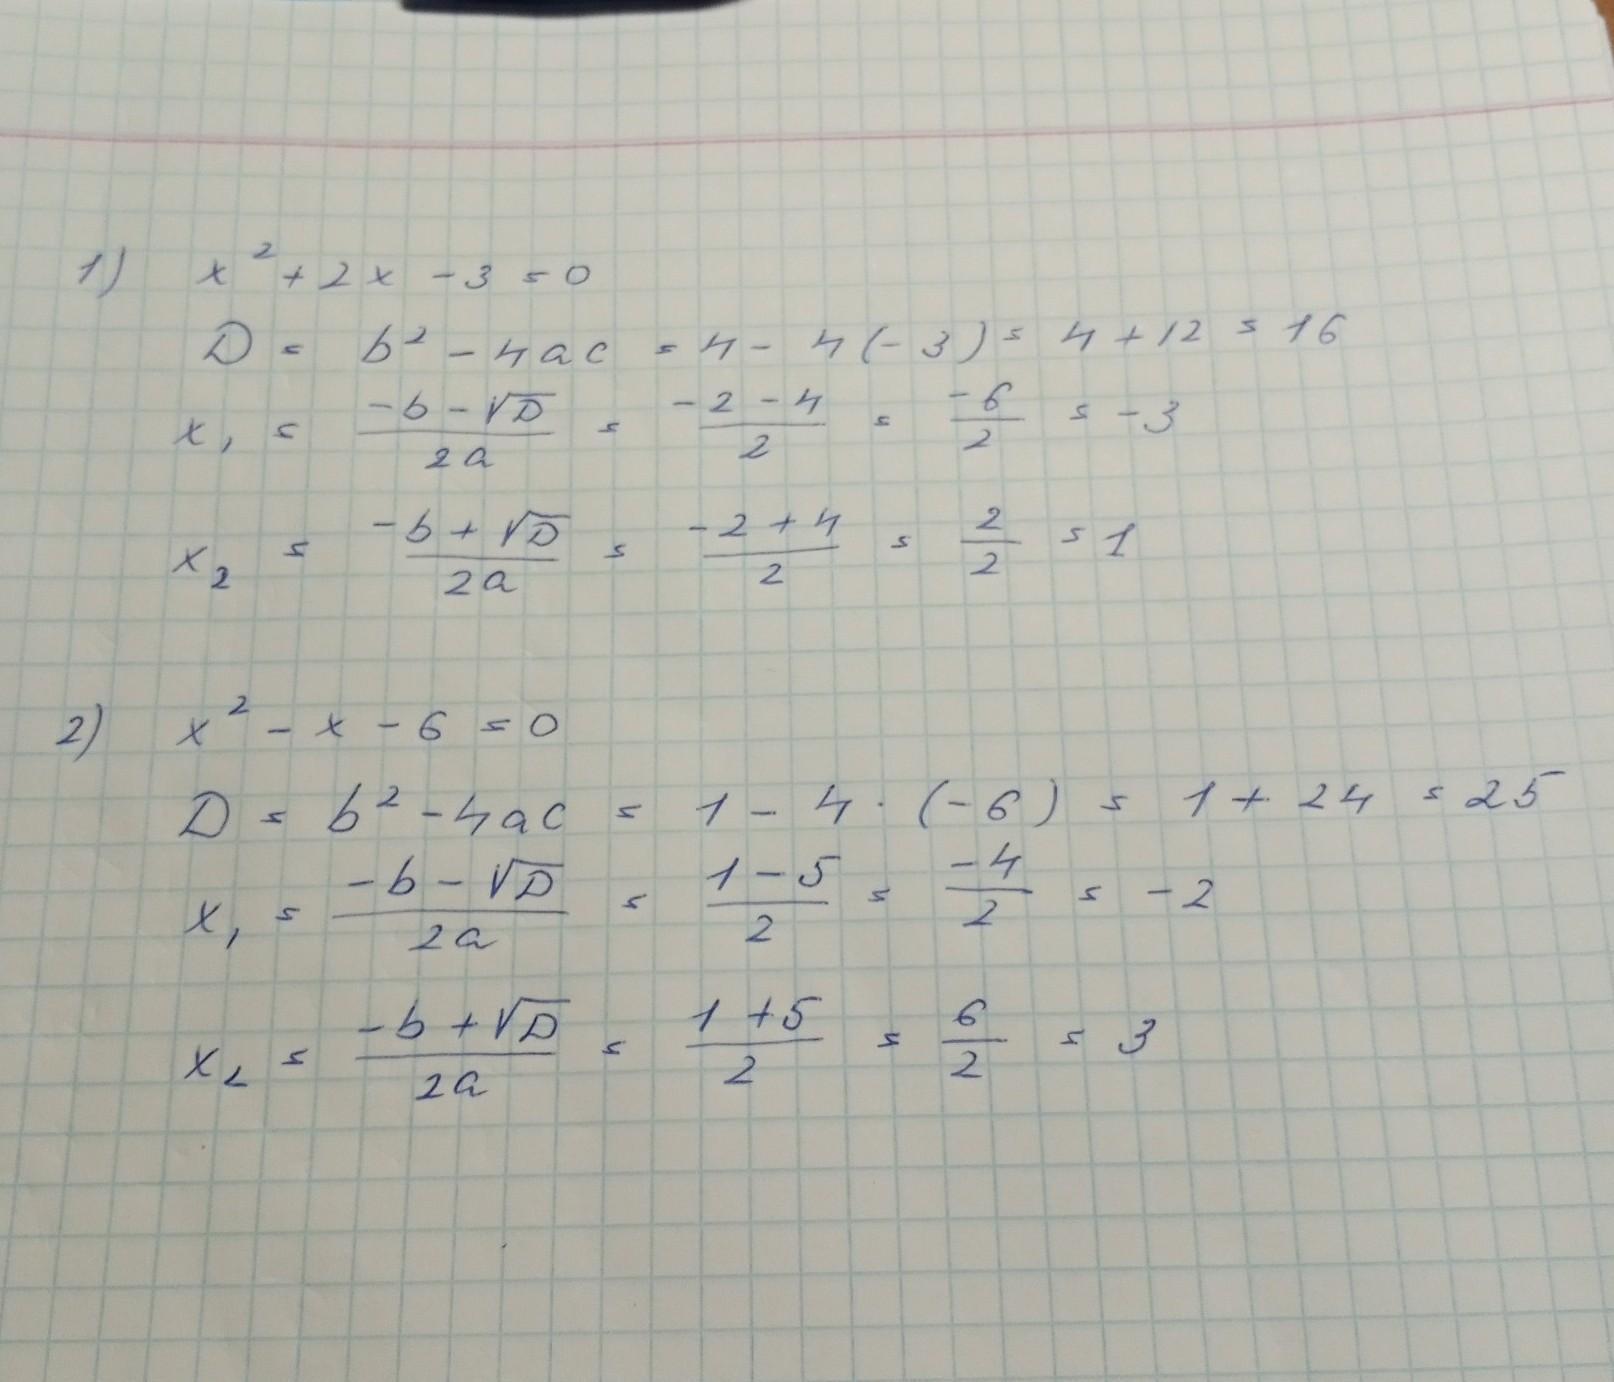 1) x² + 2x - 3 = 0
D = b² - 4ac = 4 - 4(-3) = 4 + 12 = 16
x₁ = (-b - √D)/(2a) = (-2 - 4)/2 = -6/2 = -3
x₂ = (-b + √D)/(2a) = (-2 + 4)/2 = 2/2 = 1
2) x² - x - 6 = 0
D = b² - 4ac = 1 - 4 · (-6) = 1 + 24 = 25
x₁ = (-b - √D)/(2a) = (1 - 5)/2 = -4/2 = -2
x₂ = (-b + √D)/(2a) = (1 + 5)/2 = 6/2 = 3